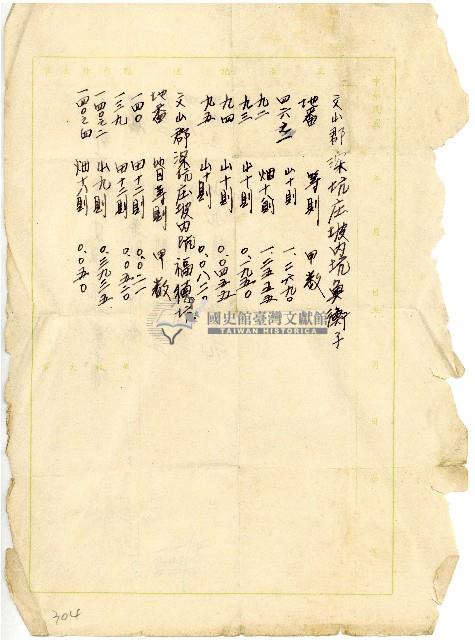 文山郡深坑庄坡內坑魚衡子
地番 等則 甲数
四六之一 山十則 一.二六九〇
九二 畑十則 一.二五五五
九三 山十則 〇.一九五〇
九四 山十則 〇.〇四五五
九五 山十則 〇.〇八一二
文山郡深坑庄坡內坑福德坑
地番 地目等則 甲数
一四〇 田十二則 〇.〇〇二一
一三九 田十二則 〇.〇五二〇
一四〇之二 山九則 〇.三九三五
一四〇之四 畑十八則 〇.〇〇五〇
國史館臺灣文獻館
TAIWAN HISTORICA
304